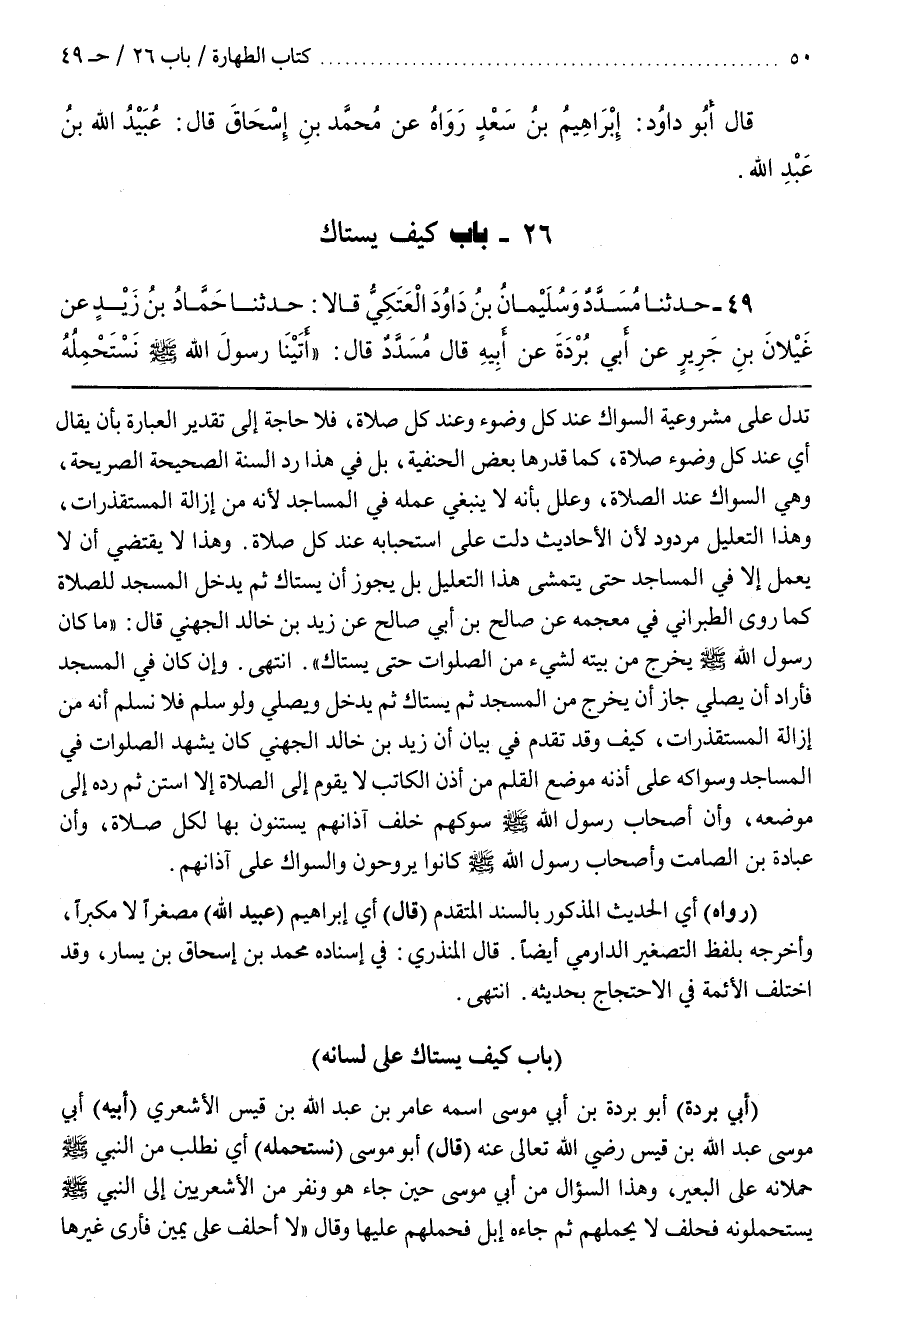 ٥٠ .......................................................... كتاب الطهارة / باب ٢٦ / حـ ٤٩
قال أَبُو داوُد: إِبْرَاهِيمُ بنُ سَعْدٍ رَوَاهُ عن مُحمَّد بنِ إِسْحَاقَ قال: عُبَيْدُ الله بنُ
عَبْدِ الله.
٢٦ - باب كيف يستاك
٤٩ـ حـدثنـا مُسَـدَّدٌ وَسُلَيْمانُ بنُ دَاوُدَ الْعَتَكِيُّ قـالا: حـدثنـا حَمَّادُ بنُ زَيْـدٍ عن
غَيْلَانَ بنِ جَرِيرٍ عن أبي بُرْدَةَ عن أَبِيهِ قال مُسَدَّدٌ قال: «أَتَيْنَا رسولَ الله ﷺ نَسْتَحْمِلُهُ
تدل على مشروعية السواك عند كل وضوء وعند كل صلاة، فلا حاجة إلى تقدير العبارة بأن يقال
أي عند كل وضوء صلاة، كما قدرها بعض الحنفية، بل في هذا رد السنة الصحيحة الصريحة،
وهي السواك عند الصلاة، وعلل بأنه لا ينبغي عمله في المساجد لأنه من إزالة المستقذرات،
وهذا التعليل مردود لأن الأحاديث دلت على استحبابه عند كل صلاة. وهذا لا يقتضي أن لا
يعمل إلا في المساجد حتى يتمشى هذا التعليل بل يجوز أن يستاك ثم يدخل المسجد للصلاة
كما روى الطبراني في معجمه عن صالح بن أبي صالح عن زيد بن خالد الجهني قال: «ما كان
رسول الله ﷺ يخرج من بيته لشيء من الصلوات حتى يستاك». انتهى. وإن كان في المسجد
فأراد أن يصلي جاز أن يخرج من المسجد ثم يستاك ثم يدخل ويصلي ولو سلم فلا نسلم أنه من
إزالة المستقذرات، كيف وقد تقدم في بيان أن زيد بن خالد الجهني كان يشهد الصلوات في
المساجد وسواكه على أذنه موضع القلم من أذن الكاتب لا يقوم إلى الصلاة إلا استن ثم رده إلى
موضعه، وأن أصحاب رسول الله ﷺ سوكهم خلف آذانهم يستنون بها لكل صـلاة، وأن
عبادة بن الصامت وأصحاب رسول الله ﷺ كانوا يروحون والسواك على آذانهم.
(رواه) أي الحديث المذكور بالسند المتقدم (قال) أي إبراهيم (عبيد الله) مصغراً لا مكبراً،
وأخرجه بلفظ التصغير الدارمي أيضاً. قال المنذري: في إسناده محمد بن إسحاق بن يسار، وقد
اختلف الأئمة في الاحتجاج بحديثه. انتهى.
(باب كيف يستاك على لسانه)
(أبي بردة) أبو بردة بن أبي موسى اسمه عامر بن عبد الله بن قيس الأشعري (أبيه) أبي
موسى عبد الله بن قيس رضي الله تعالى عنه (قال) أبو موسى (نستحمله) أي نطلب من النبي ﷺ
حملانه على البعير، وهذا السؤال من أبي موسى حين جاء هو ونفر من الأشعريين إلى النبي ﷺ
يستحملونه فحلف لا يحملهم ثم جاءه إبل فحملهم عليها وقال «لا أحلف على يمين فأرى غيرها